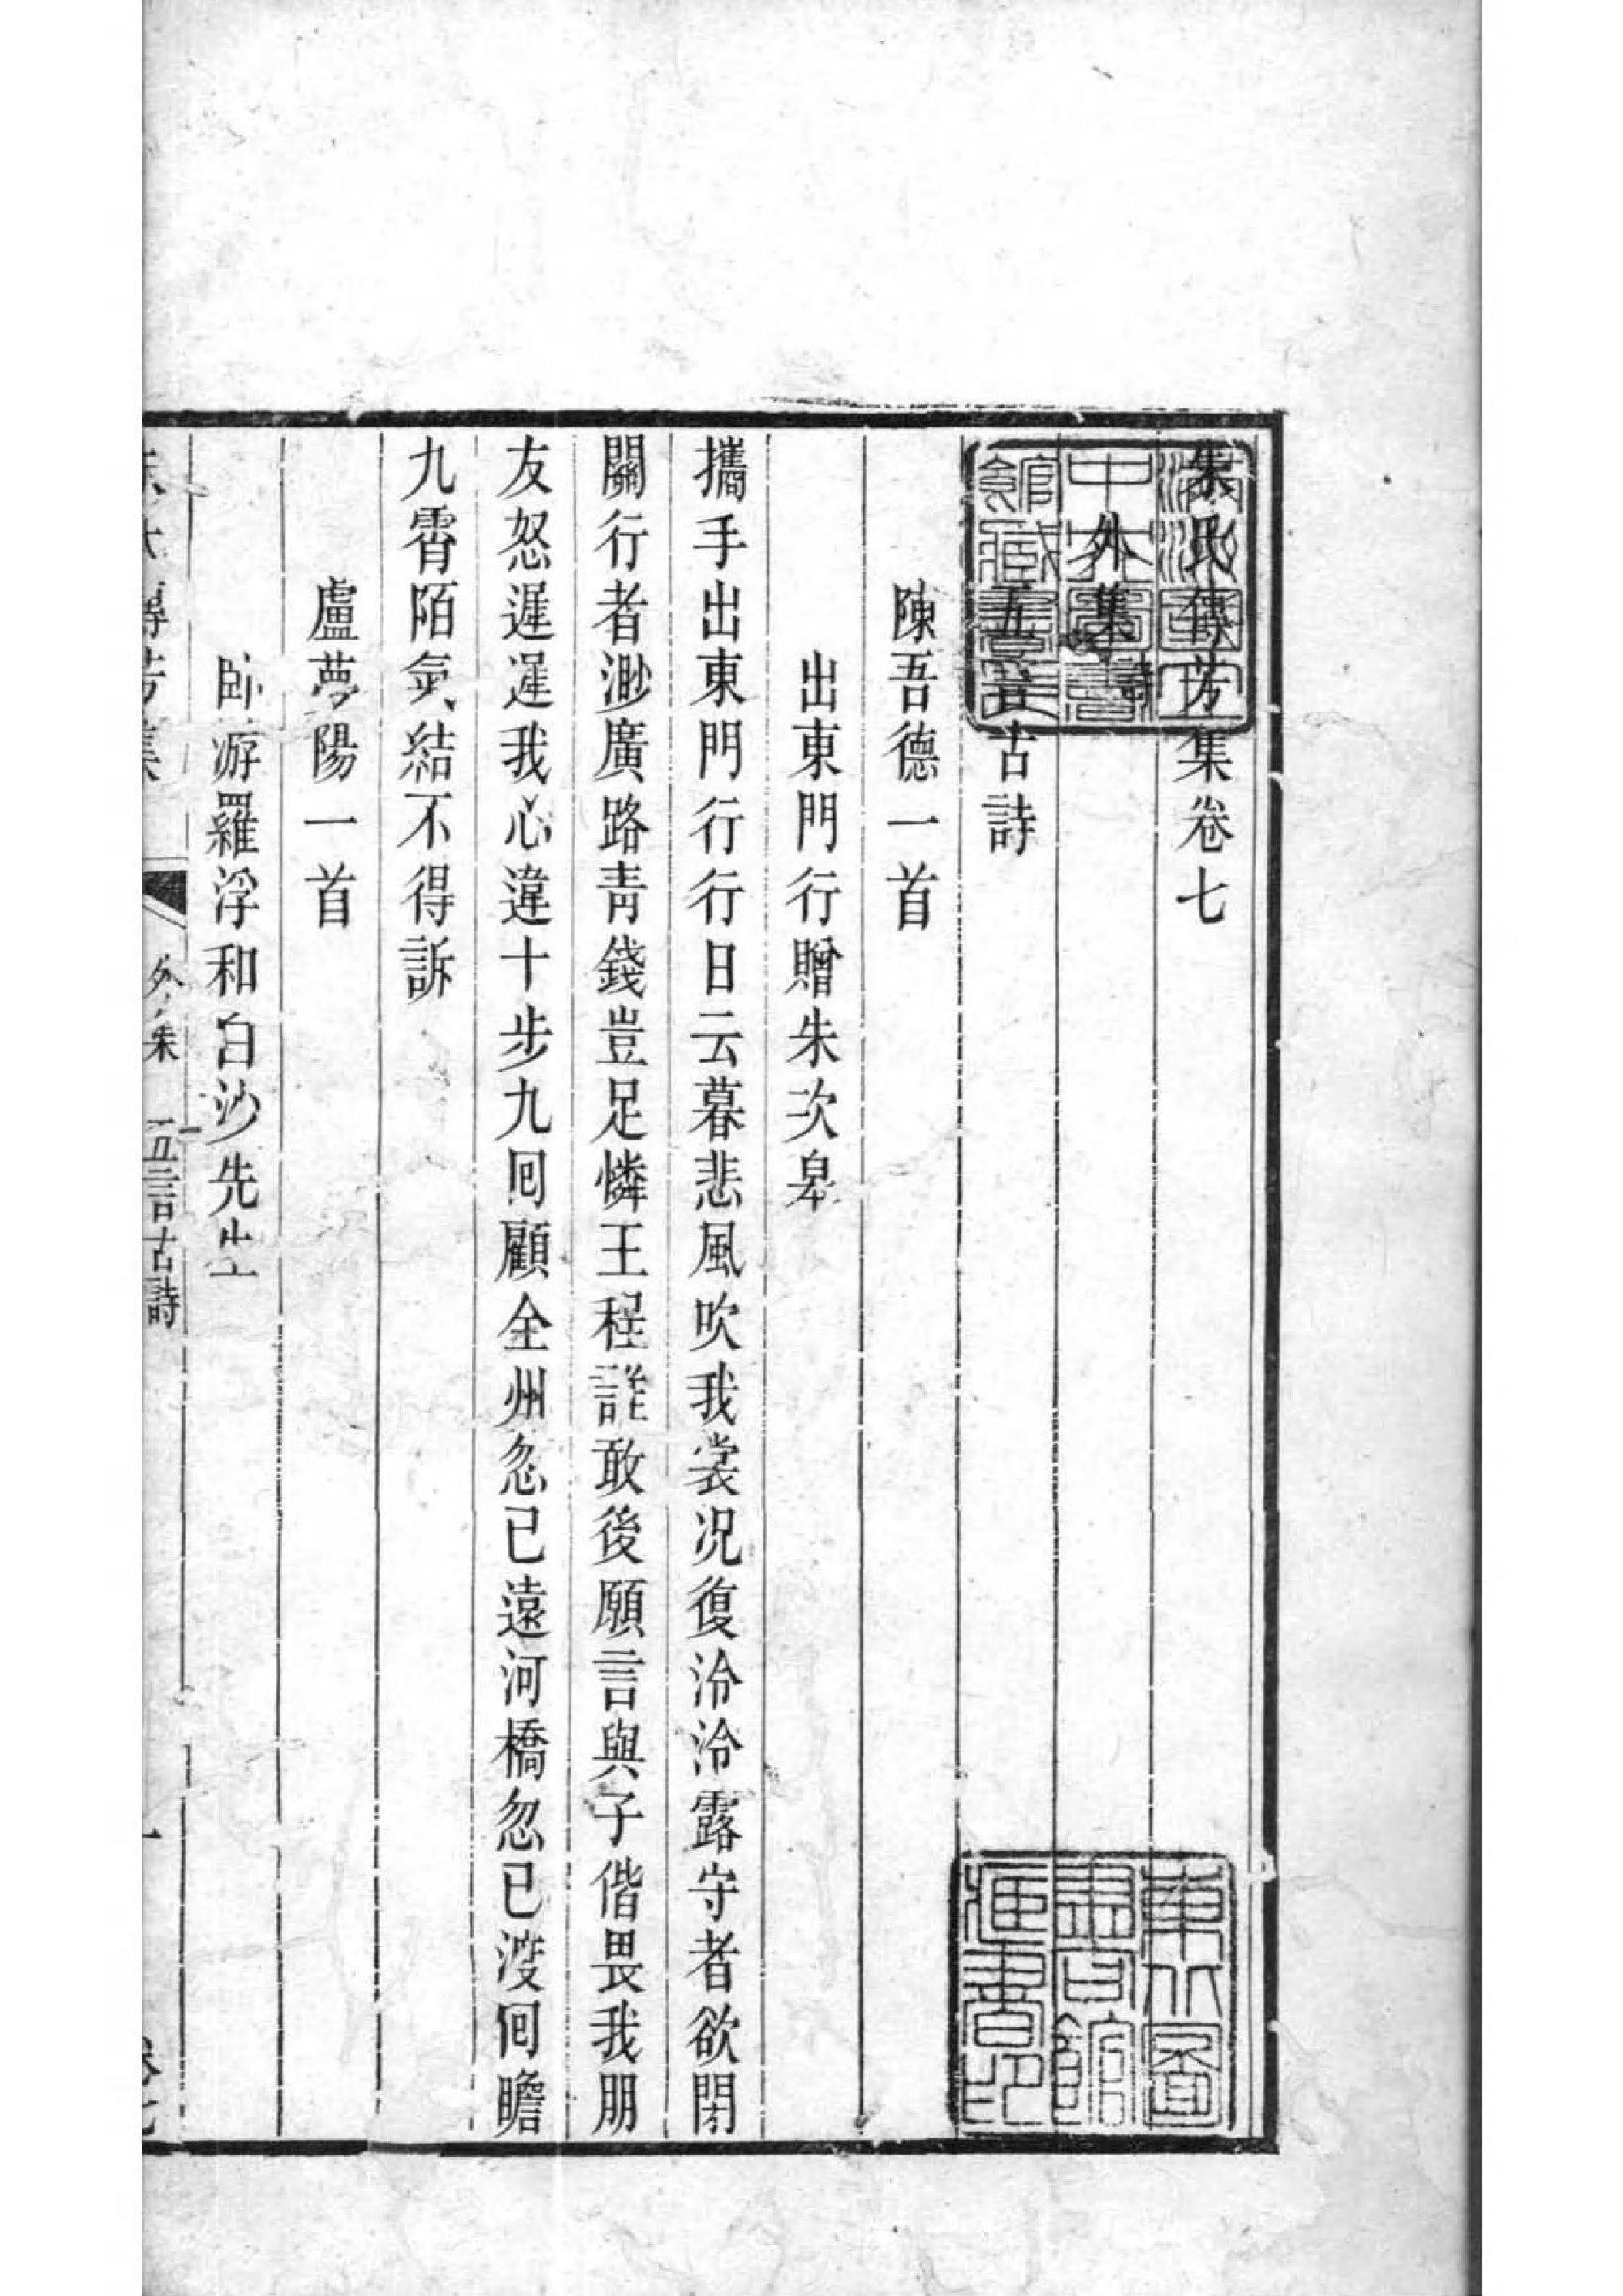 朱氏傳芳集卷七
外集 詩
五言古詩
陳吾德一首
出東門行贈朱次皋
攜手出東門行行日云暮悲風吹我裳况復泠泠露守者欲閉
關行者渺廣路青錢豈足憐王程誰敢後願言與子偕畏我朋
友怒遲遲我心違十步九囘顧全州忽已遠河橋忽已渡囘瞻
九霄陌氣結不得訴
盧夢陽一首
臥游羅浮和白沙先生
朱氏傳芳集 外集 五言古詩 一 卷七
東北圖書館藏書印